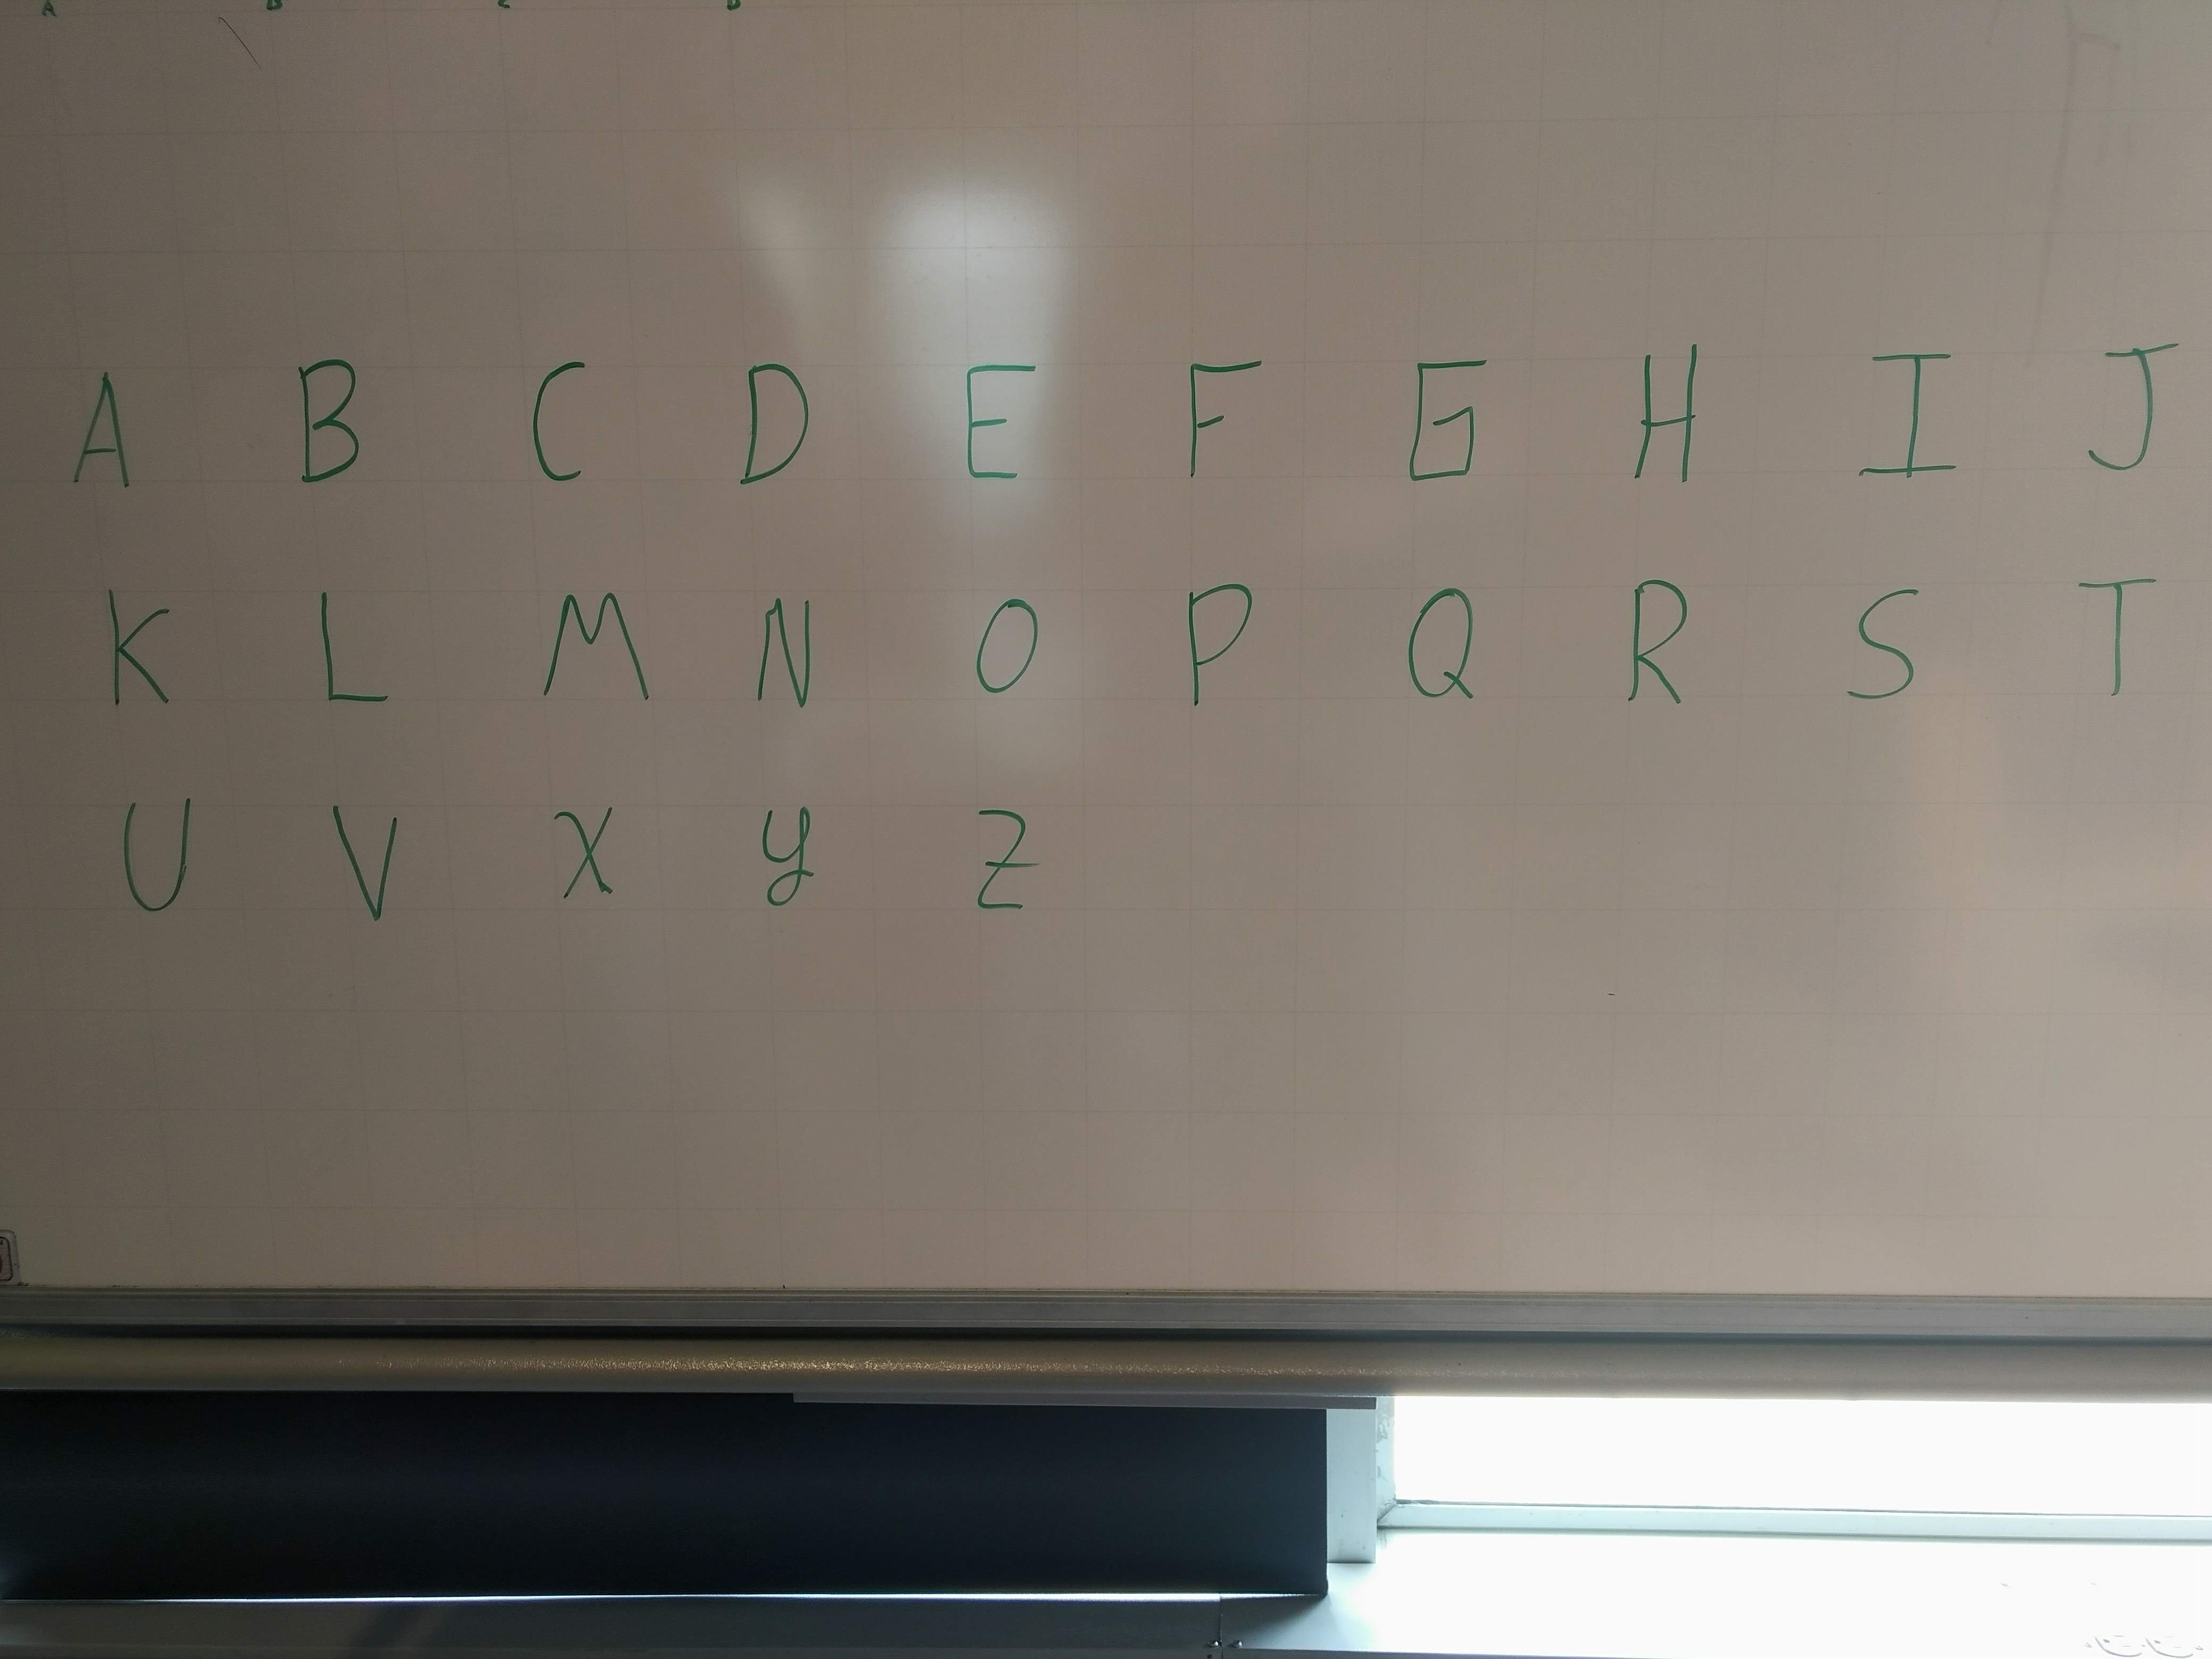 A B C D
A B C D E F G H I J
K L M N O P Q R S T
U V X Y Z